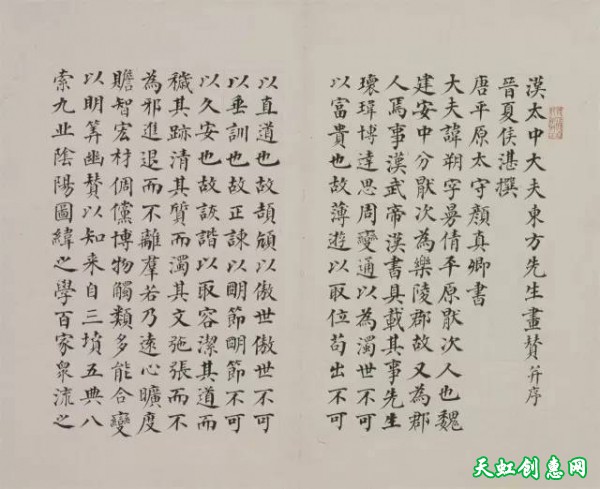 漢太中大夫東方先生畫贊并序
晉夏侯湛撰
唐平原太守顏真卿書
大夫諱朔字曼倩平原猒次人也魏
建安中分猒次為樂陵郡故又為郡
人焉事漢武帝漢書具載其事先生
瓌瑋博達思周變通以為濁世不可
以富貴也故薄遊以取位苟出不可
以直道也故頡頏以傲世傲世不可
以垂訓也故正諫以明節明節不可
以久安也故詼諧以取容潔其道而
穢其跡清其質而濁其文弛張而不
為邪進退而不離羣若乃遠心曠度
贍智宏材倜儻博物觸類多能合變
以明筭幽贊以知來自三墳五典八
索九丘陰陽圖緯之學百家眾流之
天虹创惠网